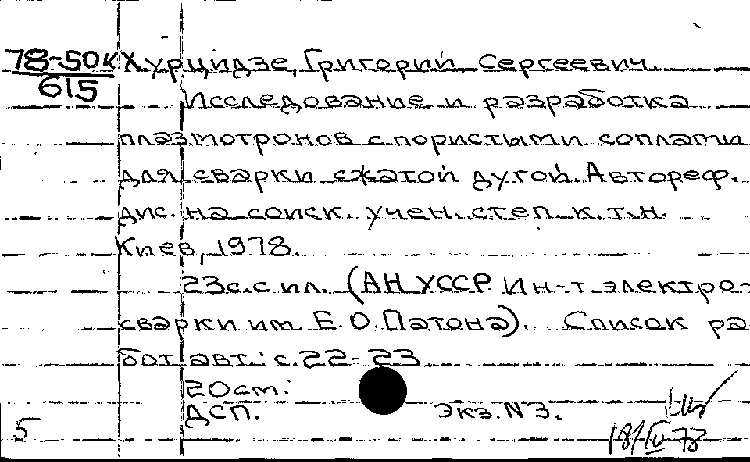 78-50к Хурцидзе, Григорий Сергеевич.
615
Исследование и разработка
плазмотронов с пористыми соплами
для сварки сжатой дугой. Автореф.
дис. на соиск. учен. степ. к.т.н.
Киев, 1978.
23с. с ил. (АН УССР. Ин-т электро-
сварки им. Е.О. Патона). Список ра
бот авт.: с. 22-23
20 см.
ДСП. Экз. N 3.
5 18/IV-78